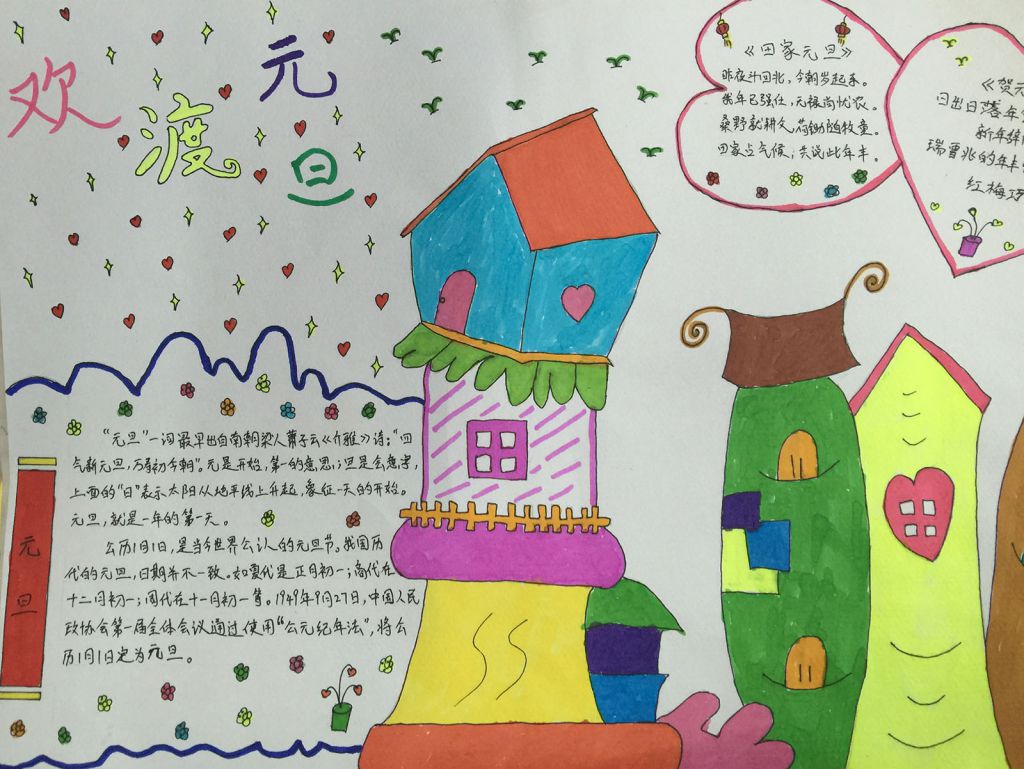 欢
渡
元
旦
《田家元旦》
昨夜斗回北,今朝岁起东。
我年已强仕,无禄尚忧农。
桑野就耕父,荷锄随牧童。
田家占气候,共说此年丰。
《贺元
日出日落年
新年辞
瑞雪兆的年丰
红梅巧
"元旦"一词最早出自南朝梁人萧子云《介雅》诗:"四
气新元旦,万寿初今朝"。元是开始,第一的意思;旦是会意字,
上面的"日"表示太阳从地平线上升起,象征一天的开始。
元旦,就是一年的第一天。
公历1月1日,是当今世界公认的元旦节。我国历
代的元旦,日期并不一致。如夏代是正月初一;商代在
十二月初一;周代在十一月初一等。1949年9月27日,中国人民
政协会第一届全体会议通过使用"公元纪年法",将公
历1月1日定为元旦。
元
旦